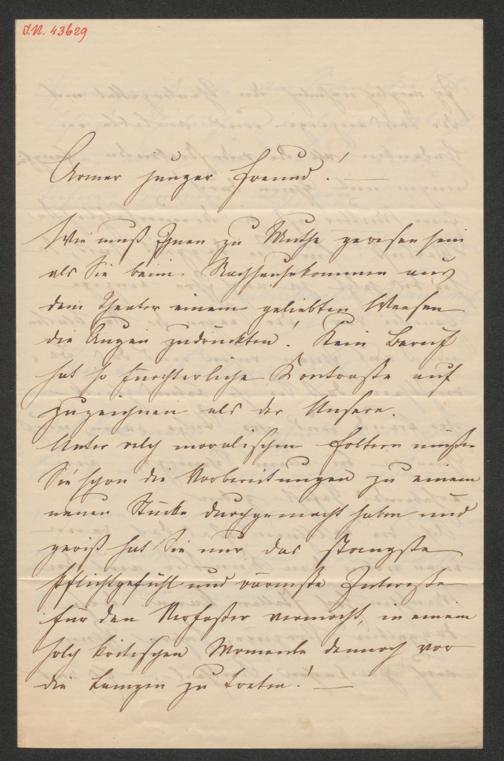 J.N. 43629
Armer junger Freund! —
Wie muß Ihnen zu Muthe gewesen sein
als Sie beim Nachhausekommen aus
dem Theater einem geliebten Wesen
die Augen zudrückten! Kein Beruf
hat so fürchterliche Kontraste auf
zuzeichnen als der Unsere.
Unter welch moralischen Foltern mußten
Sie schon die Vorbereitungen zu einem
neuen Stücke durchgemacht haben und
gewiß hat Sie nur das strengste
Pflichtgefühl und wärmste Interesse
für den Verfasser vermocht, in einem
solch kritischen Momente dennoch vor
die Lampen zu treten! —